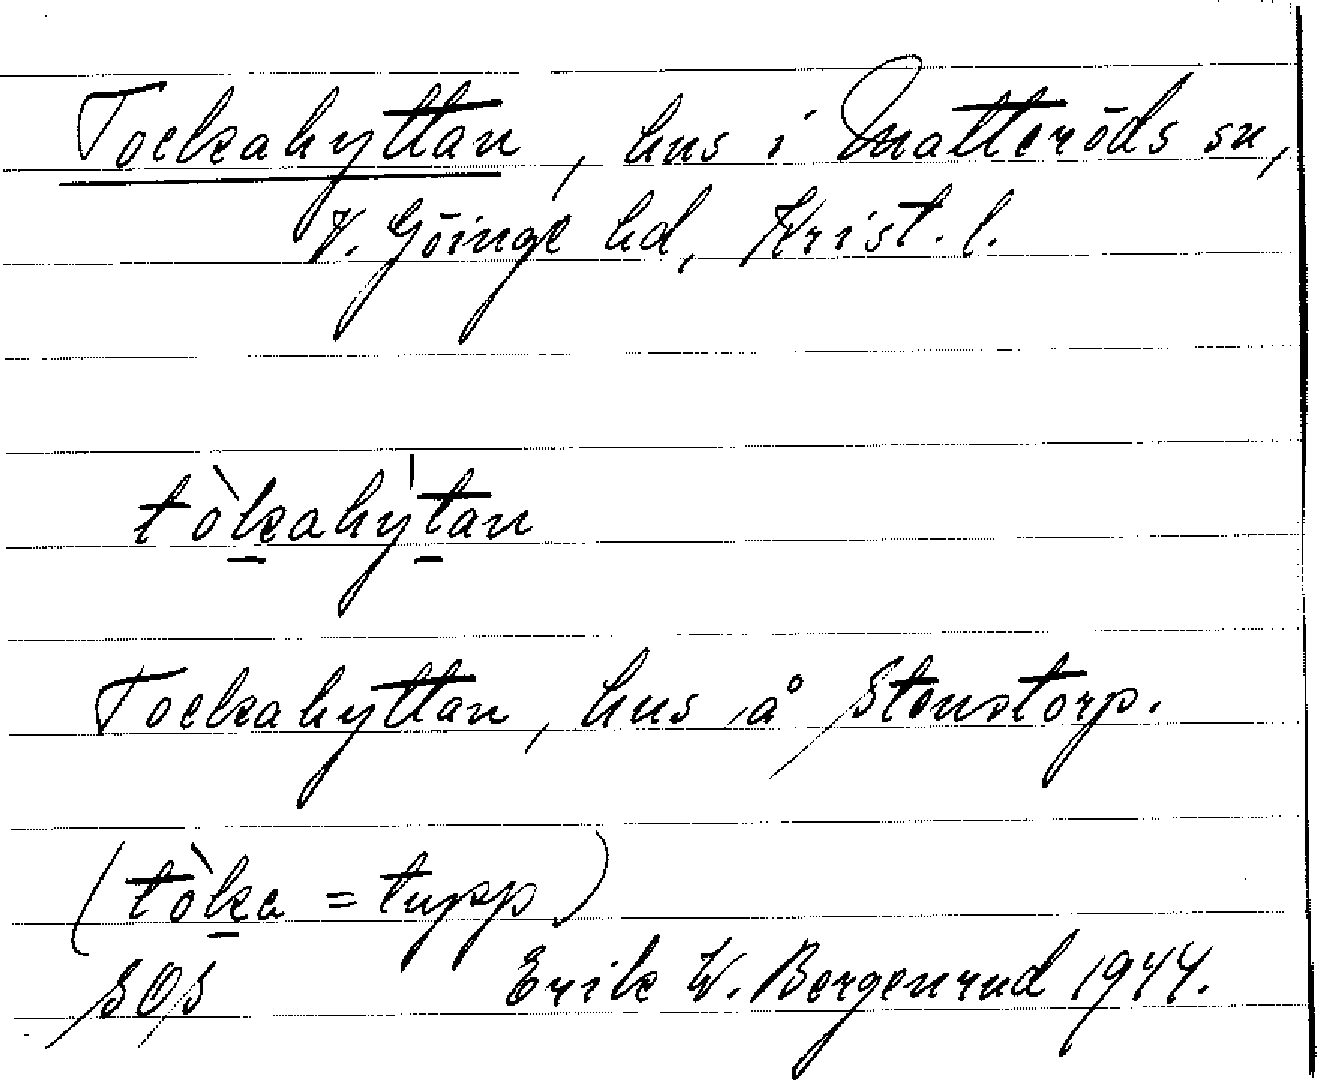 Tockahyttan, hus i Matteröds sn,
V. Göinge hd, Krist. l.
tòk̲ahy̍t̲an
Tockahyttan, hus å Stenstorp.
(tòk̲a = tupp)
SOS Erik W. Bergenrud 1944.